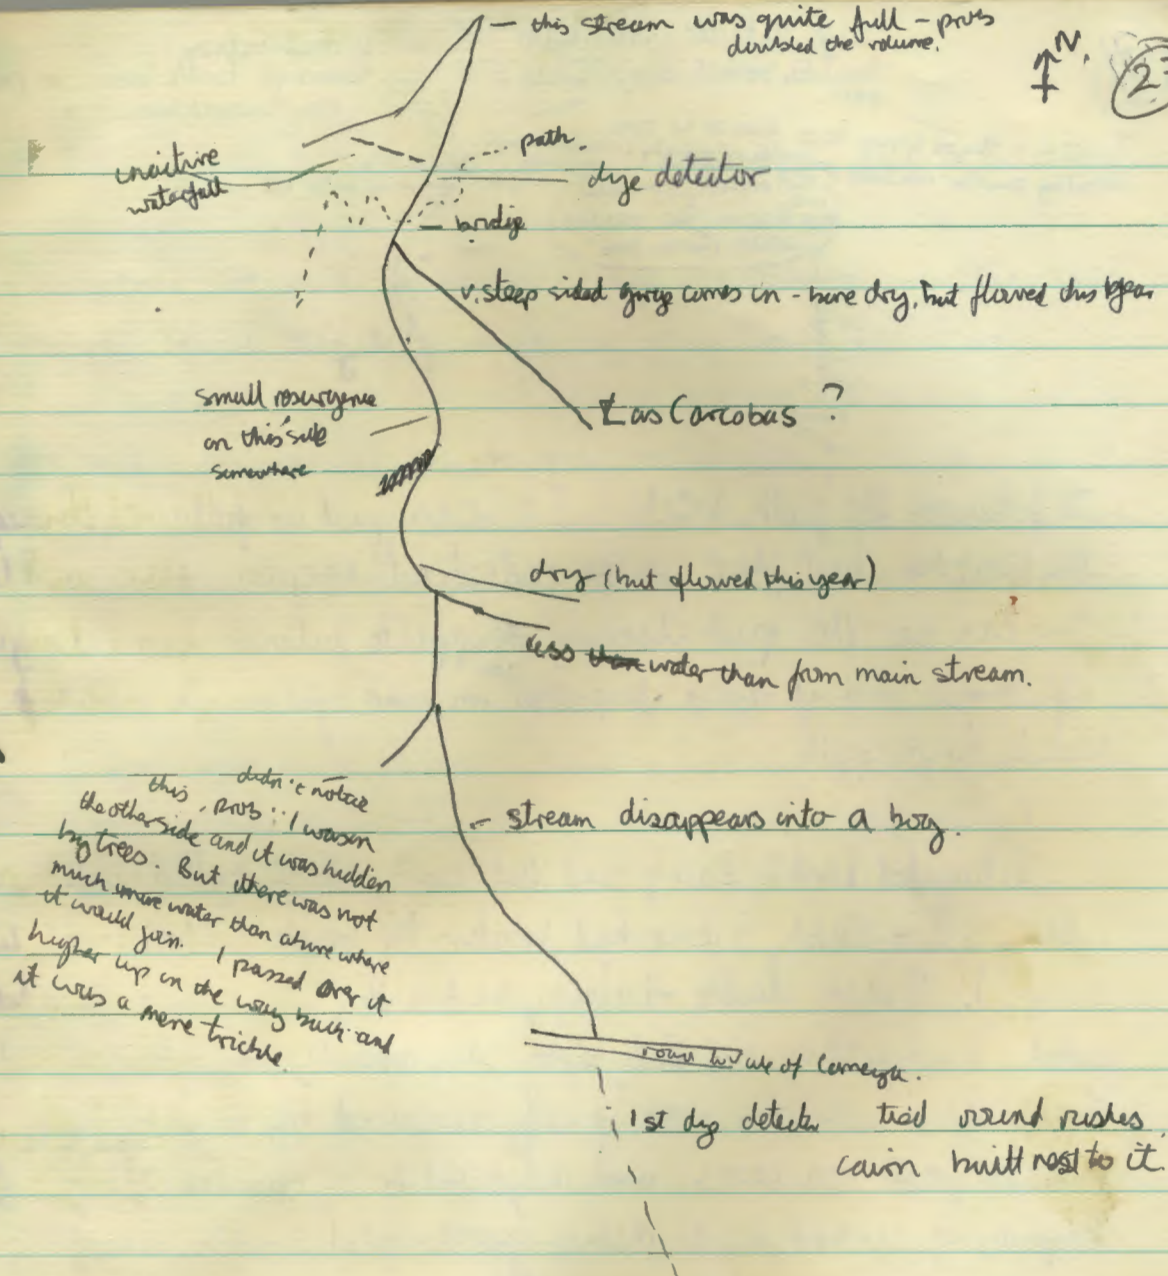 — this stream was quite full – prob
doubled the volume.
N.
2
inactive
waterfall
path.
dye detector
bridge
v. steep sided gorge comes in – bone dry, but flowed this year
Las Carcobas ?
small resurgence
on this side
somewhere
dry (but flowed this year)
less water than from main stream.
didn't notice
this, prob ∵ I was on
the other side and it was hidden
by trees. But there was not
much more water than above where
it would join. I passed over it
higher up on the way back and
it was a mere trickle.
stream disappears into a bog.
of Comeya.
1st dye detector tied round rushes,
cairn built next to it.